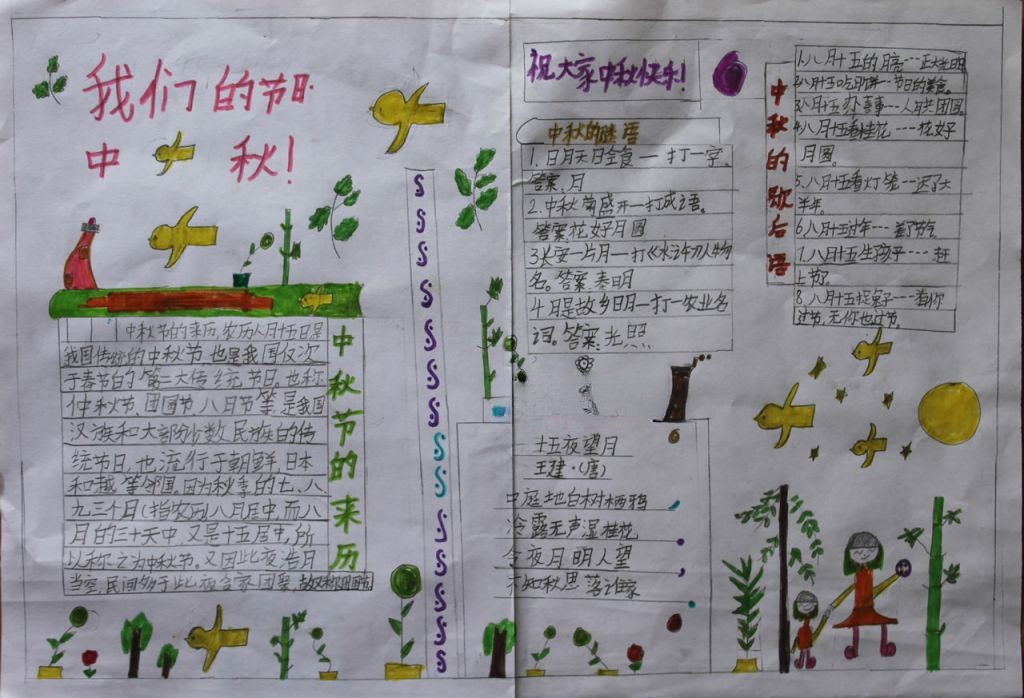 我们的节日.
中 秋!
中秋节的来历.农历八月十五日是
我国传统的中秋节.也是我国仅次
于春节日的第二大传统节日.也称
仲秋节.团圆节.八月节等.是我国
汉族和大部分少数民族的传
统节日.也流行于朝鲜.日本
和越等邻国.因为秋季的七、八、
九三个月(指农历)八月居中.而八
月的三十天中.又是十五居中,所
以称之为中秋节.又因此夜浩月
当空.民间多于此夜合家团聚,故又称团圆节
中秋节的来历
祝大家中秋快乐!
中秋的谜语
1.日月天日全食一打一字.
答案.月
2.中秋菊盛开一打成语。
答案花好月圆
3长安一片月一打《水浒初人物
名。答案.秦明
4月是故乡日月一打一农业名
词。答案.光照
十五夜望月
王建·(唐)
中庭地白树栖鸦
冷露无声湿桂花
今夜月明人望
不知秋思落谁家
中秋的歇后语
1.八月十五的月亮---正大光明
2.八月十五吃月饼---节日的美食.
3.八月十五办喜事---人月共团圆
4.八月十五看桂花----花好
月圆。
5.八月十五看灯笼---迟了大
半年.
6.八月十五过年---差节气
7.八月十五生孩子----赶
上节.
8.八月十五捉兔子---有你
过节.无你也过节.